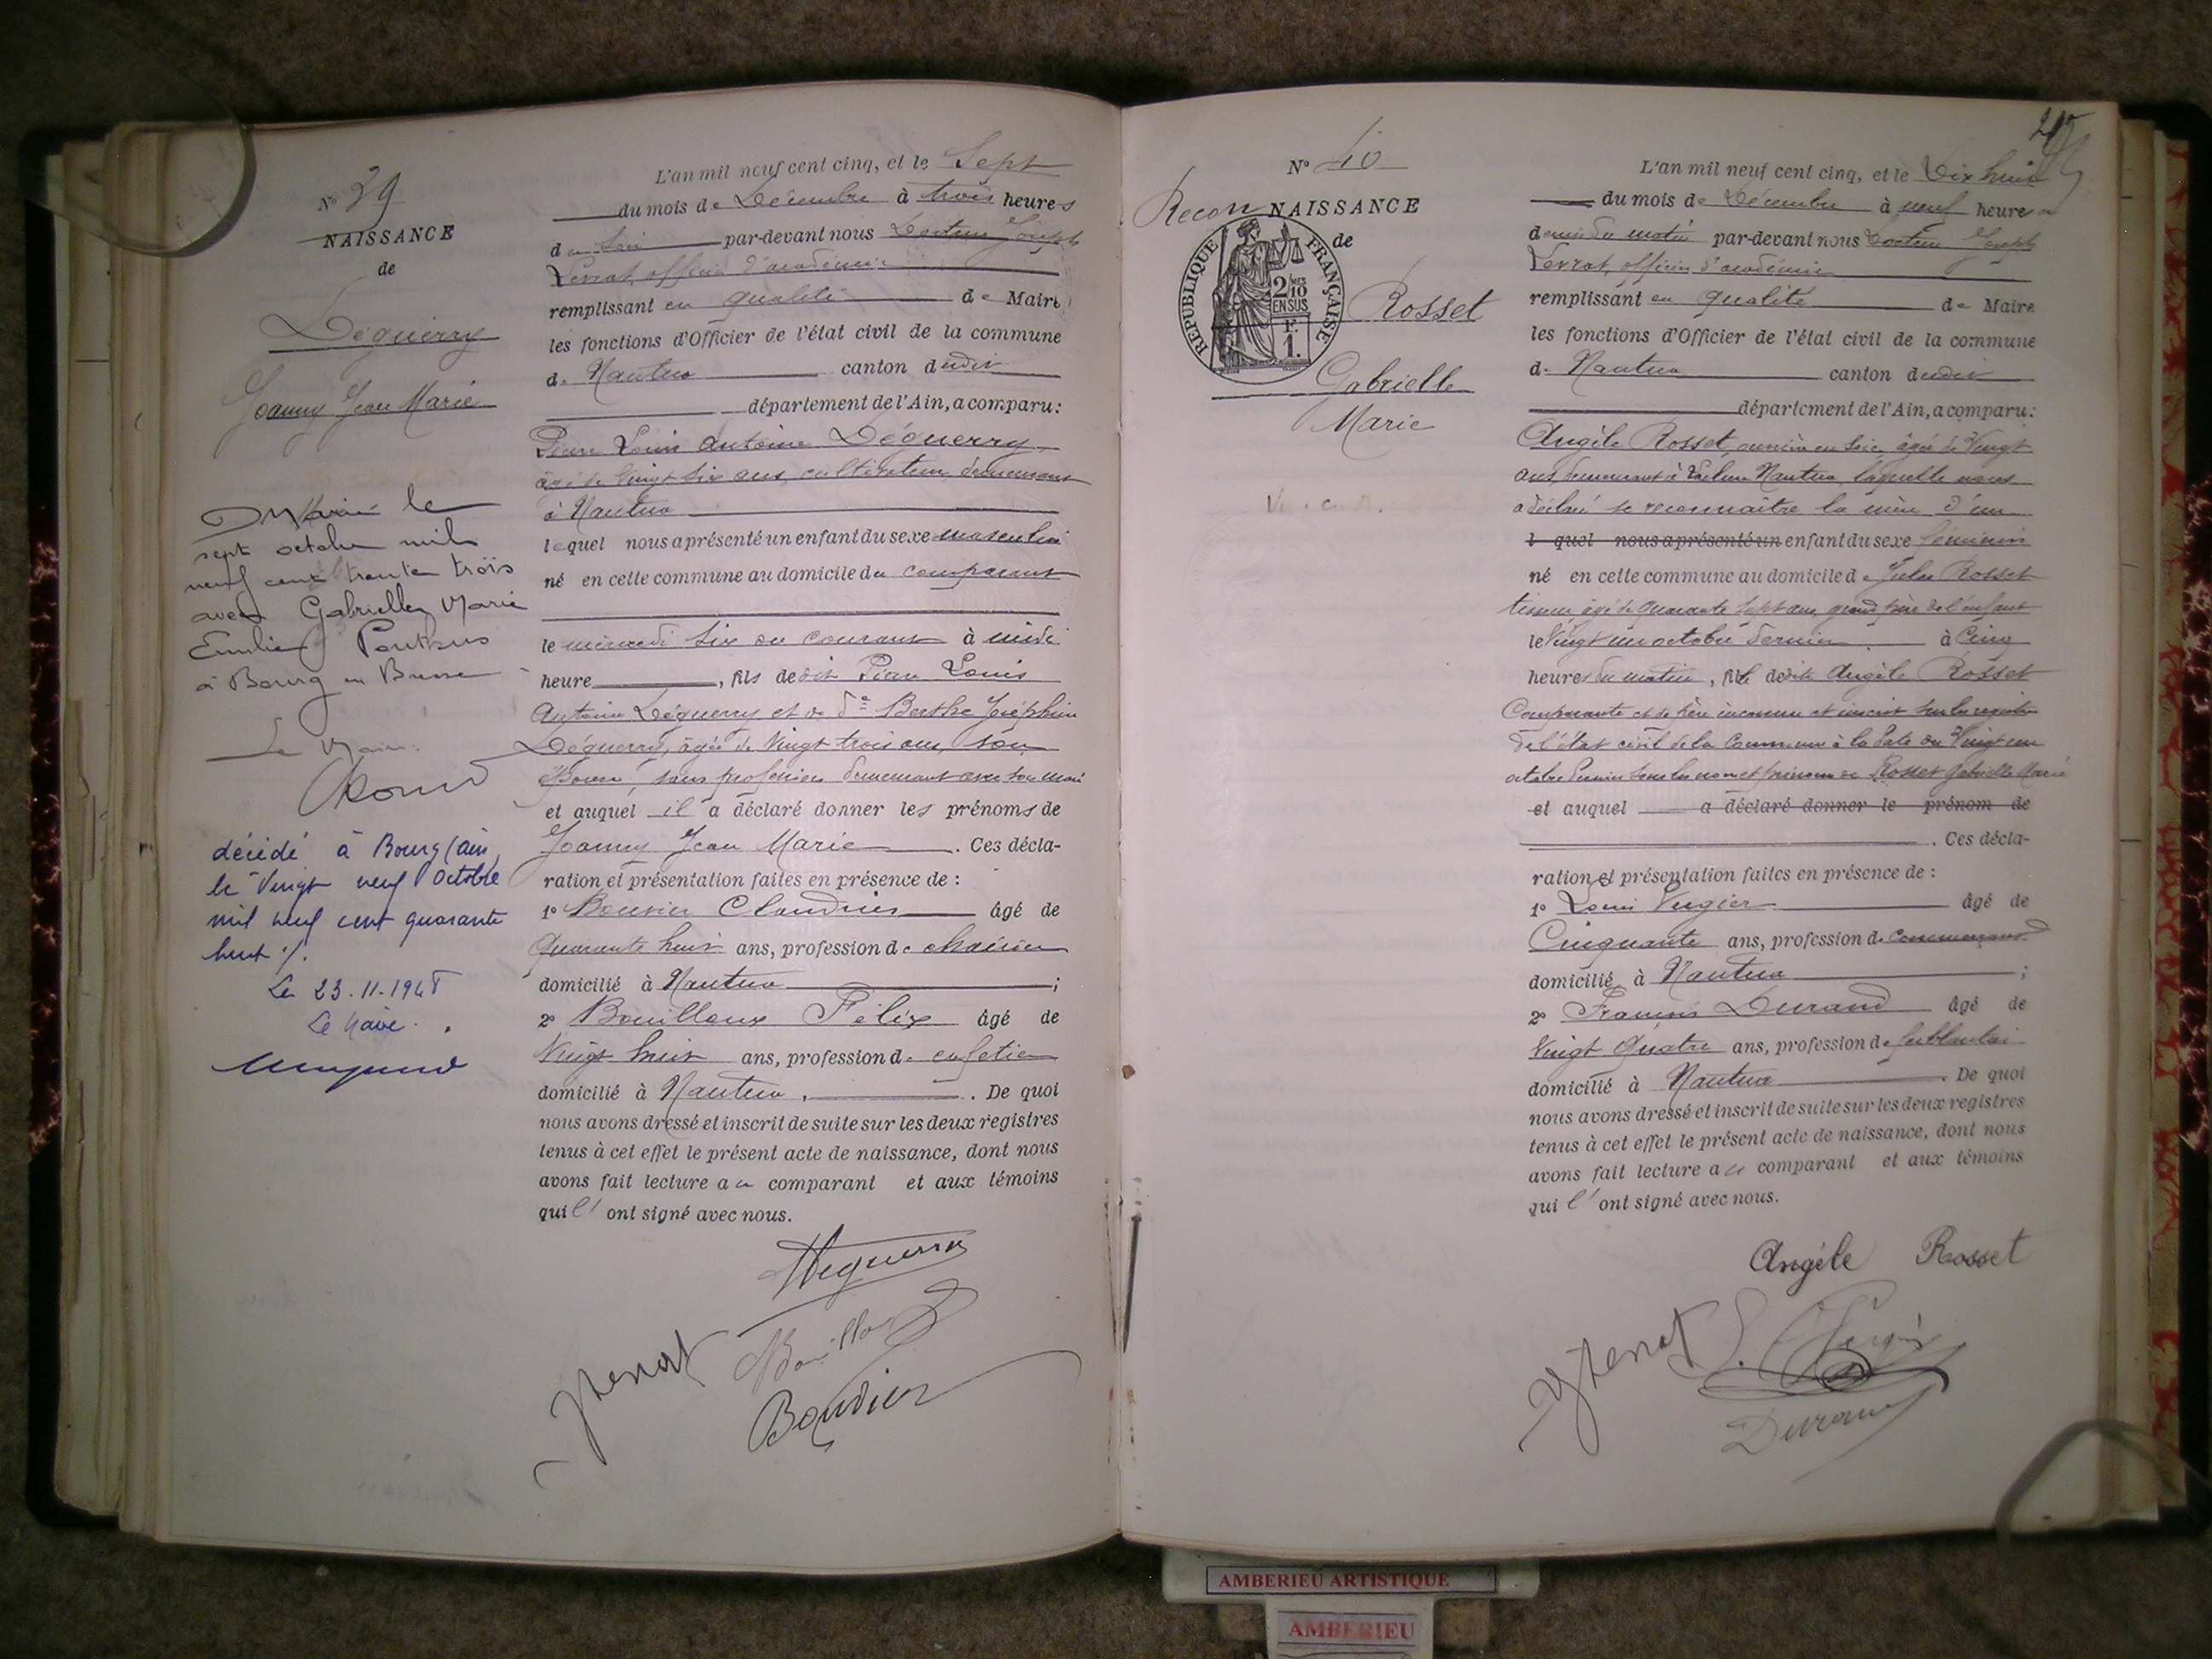 N° 39
NAISSANCE
de
Déguerry
Joanny Jean Marie
Marié le
sept octobre mil
neuf cent trente trois
avec Gabrielle Marie
Emilie
à Bourg en Bresse
Le Maire
décédé à Bourg (Ain)
le Vingt neuf Octobre
mil neuf cent quarante
huit ./.
Le 23.11.1948
Le Maire.
L'an mil neuf cent cinq, et le Sept
du mois de Décembre à trois heures
du soir par-devant nous Docteur Joseph
Levrat, officier d'académie
remplissant en qualité de Maire
les fonctions d'Officier de l'état civil de la commune
de Nantua canton dudit
département de l'Ain, a comparu:
Pierre Louis Antoine Déguerry,
âgé de Vingt six ans, cultivateur, demeurant
à Nantua
lequel nous a présenté un enfant du sexe masculin
né en cette commune au domicile du comparant
le mercredi six du courant à midi
heure , fils dedit Pierre Louis
Antoine Déguerry et de de Berthe Joséphine
Déguerry, âgée de Vingt trois ans, son
épouse, sans profession demeurant avec son mari
et auquel il a déclaré donner les prénoms de
Joanny Jean Marie . Ces décla-
ration et présentation faites en présence de :
1° Bouvier Claudius âgé de
Quarante huit ans, profession de
domicilié à Nantua ;
2° Bouilloux Félix âgé de
Vingt huit ans, profession de cafetier
domicilié à Nantua . De quoi
nous avons dressé et inscrit de suite sur les deux registres
tenus à cet effet le présent acte de naissance, dont nous
avons fait lecture au comparant et aux témoins
qui l' ont signé avec nous.
Déguerry
Bouvier
N° 40
Recon NAISSANCE
de
REPUBLIQUE FRANÇAISE
2/10 EN SUS
F. 1.
Rosset
Gabrielle
Marie
L'an mil neuf cent cinq, et le Dix huit
du mois de Décembre à neuf heures
demie du matin par-devant nous Docteur Joseph
Levrat, officier d'académie
remplissant en qualité de Maire
les fonctions d'Officier de l'état civil de la commune
de Nantua canton dudit
département de l'Ain, a comparu:
Angèle Rosset, ouvrière en soie, âgée de Vingt
ans, demeurant à Nantua, laquelle nous
a déclaré se reconnaître la mère d'un
l quel nous a présenté un enfant du sexe féminin
né en cette commune au domicile de Jules Rosset
tisseur, âgé de Quarante Sept ans, grand père de l'enfant
le Vingt un octobre dernier à Cinq
heures du matin, fille dedite Angèle Rosset
Comparante et de père inconnu et inscrit sur les registres
de l'état civil de la Commune à la date du Vingt un
octobre dernier sous les nom et prénoms de Rosset Gabrielle Marie
et auquel a déclaré donner le prénom de
. Ces décla-
ration et présentation faites en présence de :
1° Louis Vugier âgé de
Cinquante ans, profession de
domicilié à Nantua ;
2° Francis Durand âgé de
Vingt Quatre ans, profession de ferblantier
domicilié à Nantua . De quoi
nous avons dressé et inscrit de suite sur les deux registres
tenus à cet effet le présent acte de naissance, dont nous
avons fait lecture a comparant et aux témoins
qui l' ont signé avec nous.
Angèle Rosset
Durand
AMBERIEU ARTISTIQUE
AMBERIEU